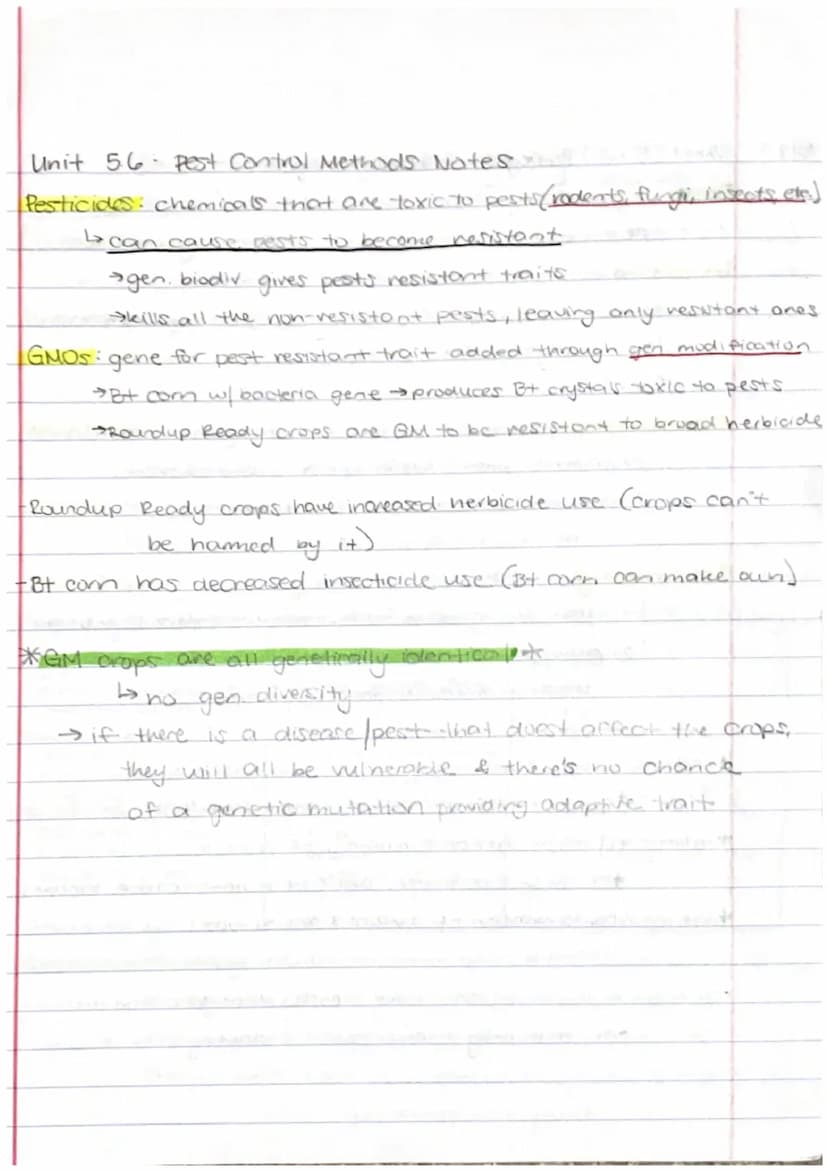 Unit 5.6 - Pest Control Methods Notes
Pesticides: chemicals that are toxic to pests (rodents, fungi, insects, etc.)
↳ can cause pests to become resistant
→ gen. biodiv. gives pests resistant traits
→ kills all the non-resistant pests, leaving only resistant ones
GMOs: gene for pest resistant trait added through gen modification
→ Bt corn w/ bacteria gene → produces Bt crystals toxic to pests
→ Roundup Ready crops are GM to be resistant to broad herbicide
- Roundup Ready crops have increased herbicide use (crops can't
be harmed by it)
- Bt corn has decreased insecticide use (Bt corn can make own)
*GM crops are all genetically identical*
↳ no gen. diversity
→ if there is a disease/pest that doest affect the crops,
they will all be vulnerable & there's no chance
of a genetic mutation providing adaptive trait